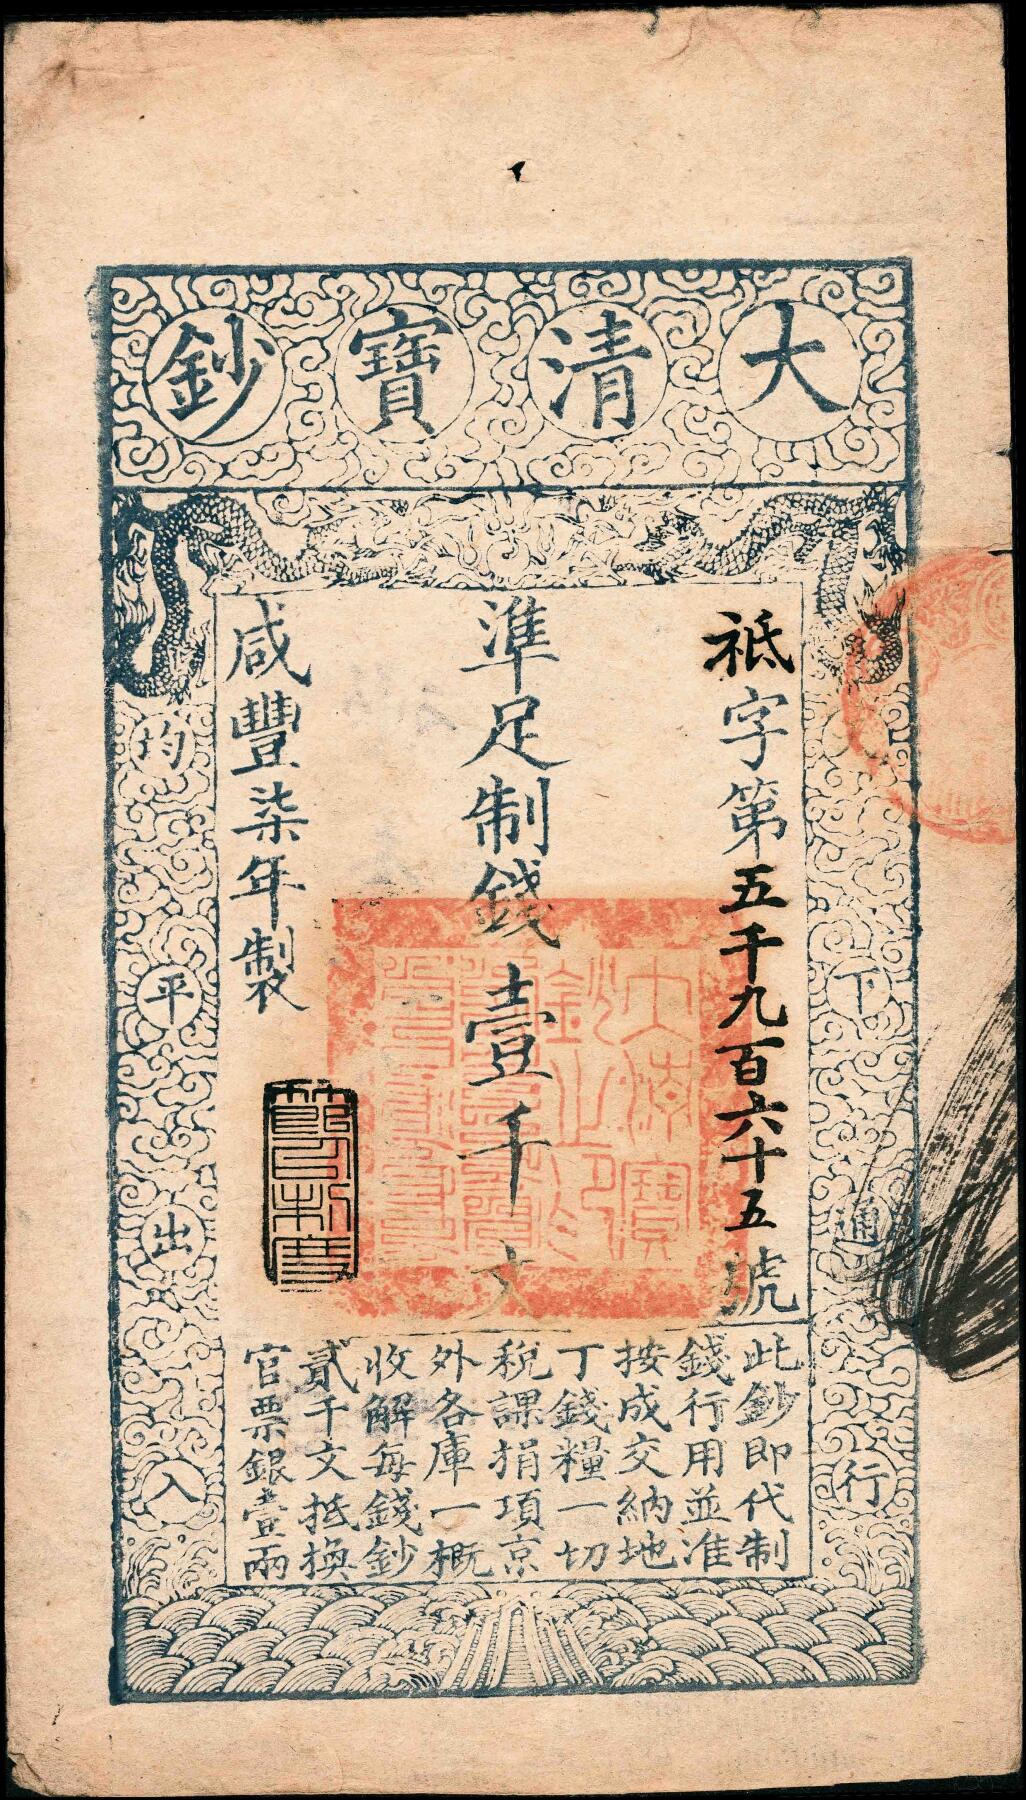 大清寶鈔
祗字第五千九百六十五號
準足制錢壹千文
咸豐柒年製
天下通行
均平出入
此鈔即代制
錢行用並准
按成交納地
丁錢糧一切
稅課捐項京
外各庫一概
收解每錢鈔
貳千文抵換
官票銀壹兩
大清寶
鈔之印